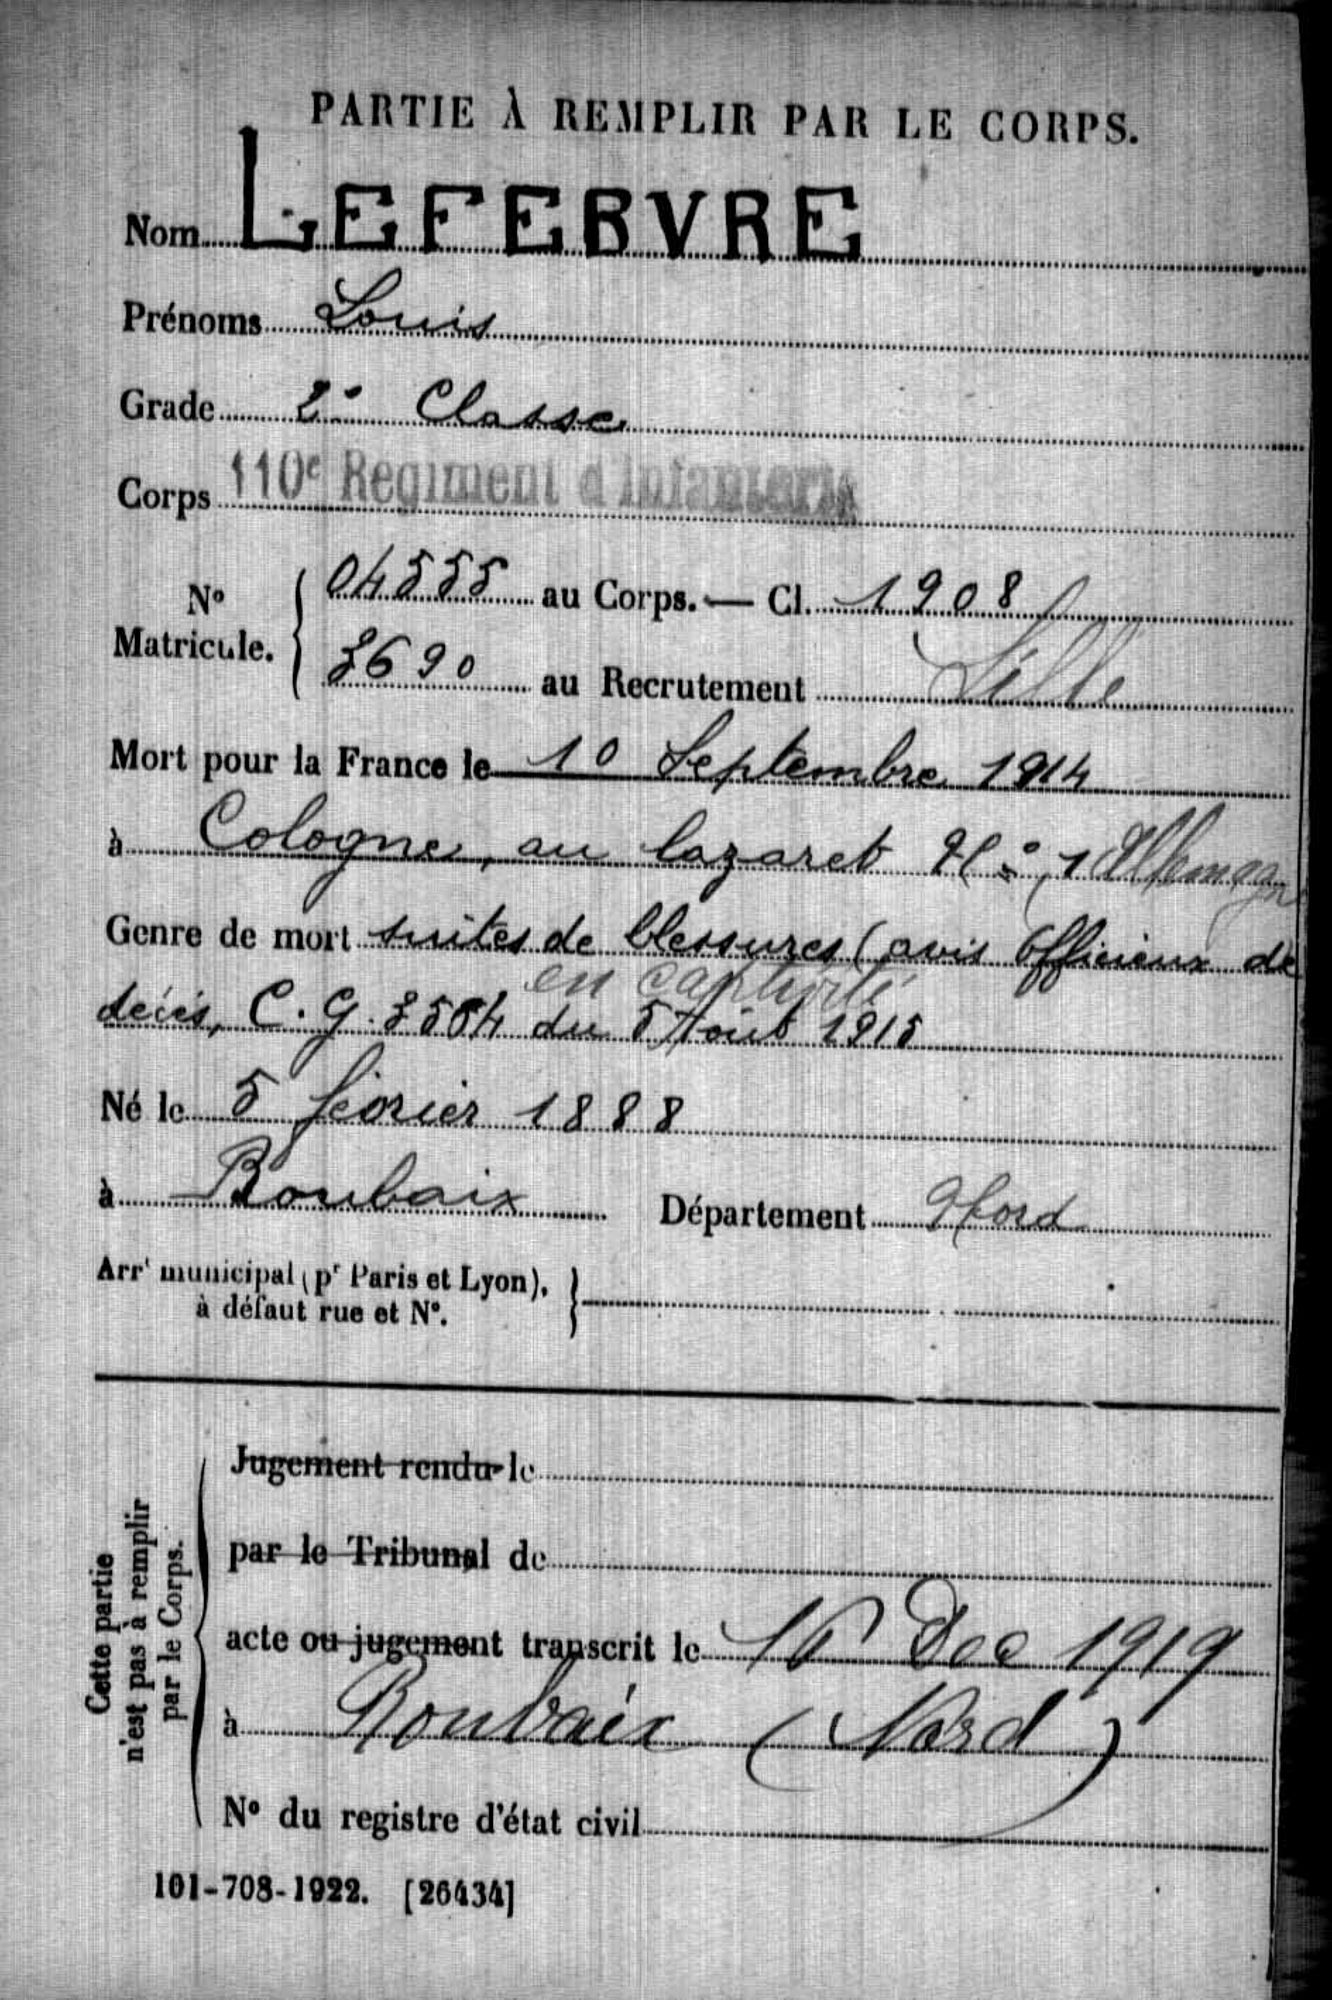 PARTIE À REMPLIR PAR LE CORPS.
Nom LEFEBVRE
Prénoms Louis
Grade 2e Classe
Corps 110e Régiment d'Infanterie
No Matricule. { 04555 au Corps. — Cl. 1908
3690 au Recrutement Lille
Mort pour la France le 10 Septembre 1914
à Cologne, au lazaret No 1 Allemagne
Genre de mort suites de blessures (avis officieux de
en captivité
décès, C. G. du 5 Août 1915
Né le 5 février 1888
à Roubaix Département Nord
Arrt municipal (pr Paris et Lyon), à défaut rue et No. }
Cette partie n'est pas à remplir par le Corps.
Jugement rendu le
par le Tribunal de
acte ou jugement transcrit le Dec 1919
à Roubaix (Nord)
No du registre d'état civil
101-708-1922. [26434]